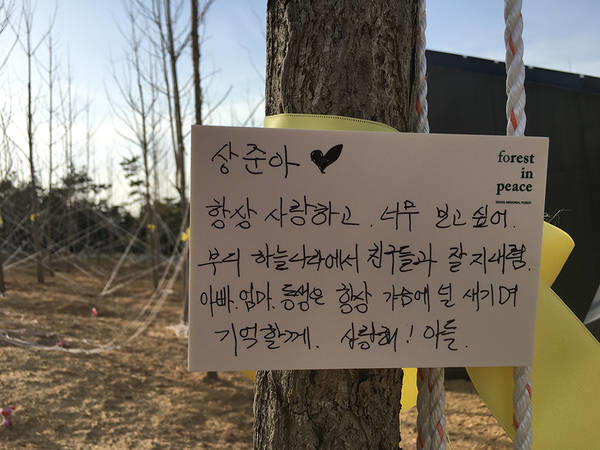 상준아 ♥
forest
in
peace
SEWOL MEMORIAL FOREST
항상 사랑하고. 너무 보고 싶어.
부디 하늘나라에서 친구들과 잘 지내렴.
아빠.엄마.동생은 항상 가슴에 널 새기며
기억할께. 사랑해! 아들.